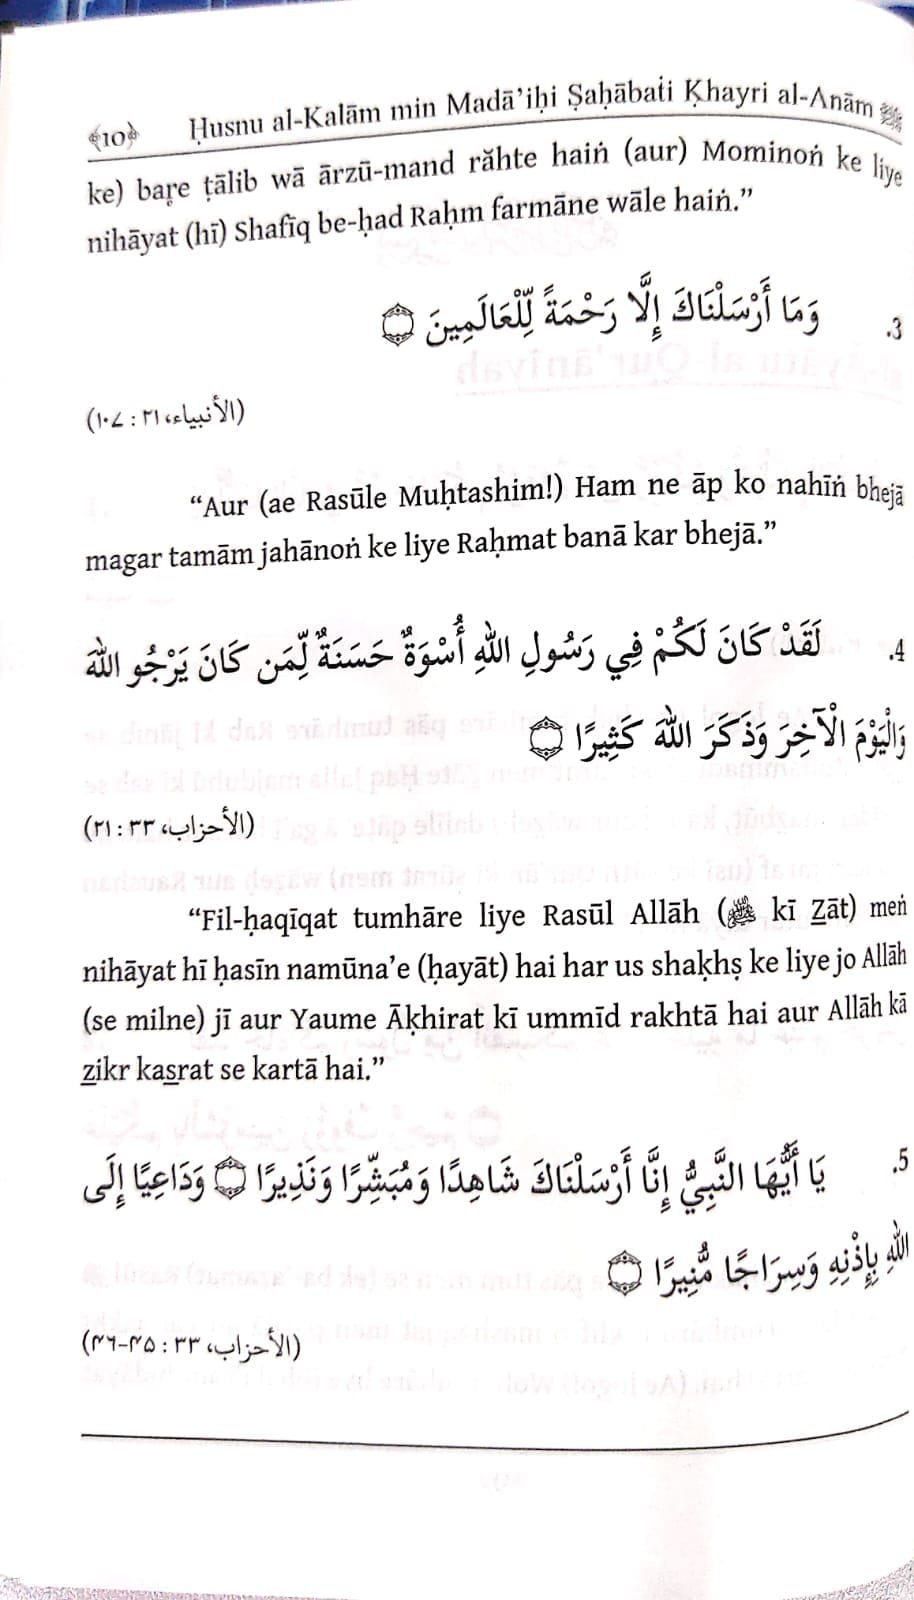 ﴾10﴿ Ḥusnu al-Kalām min Madā’iḥi Ṣaḥābati Ḳhayri al-Anām ﷺ
ke) baṛe ṭālib wā ārzū-mand răhte haiṅ (aur) Mominoṅ ke liye
nihāyat (hī) Shafīq be-ḥad Raḥm farmāne wāle haiṅ.”
3. وَمَا أَرْسَلْنَاكَ إِلَّا رَحْمَةً لِّلْعَالَمِينَ ۝
(الأنبياء، ٢١ : ١٠٧)
“Aur (ae Rasūle Muḥtashim!) Ham ne āp ko nahīṅ bhejā
magar tamām jahānoṅ ke liye Raḥmat banā kar bhejā.”
4. لَقَدْ كَانَ لَكُمْ فِي رَسُولِ اللهِ أُسْوَةٌ حَسَنَةٌ لِّمَن كَانَ يَرْجُو اللهَ
وَالْيَوْمَ الْآخِرَ وَذَكَرَ اللهَ كَثِيرًا ۝
(الأحزاب، ٣٣ : ٢١)
“Fil-ḥaqīqat tumhāre liye Rasūl Allāh (ﷺ kī Z̲āt) meṅ
nihāyat hī ḥasīn namūna’e (ḥayāt) hai har us shaḳhṣ ke liye jo Allāh
(se milne) jī aur Yaume Āḳhirat kī ummīd rakhtā hai aur Allāh kā
z̲ikr kas̲rat se kartā hai.”
5. يَا أَيُّهَا النَّبِيُّ إِنَّا أَرْسَلْنَاكَ شَاهِدًا وَمُبَشِّرًا وَنَذِيرًا ۝ وَدَاعِيًا إِلَى
اللهِ بِإِذْنِهِ وَسِرَاجًا مُّنِيرًا ۝
(الأحزاب، ٣٣ : ٤٥-٤٦)